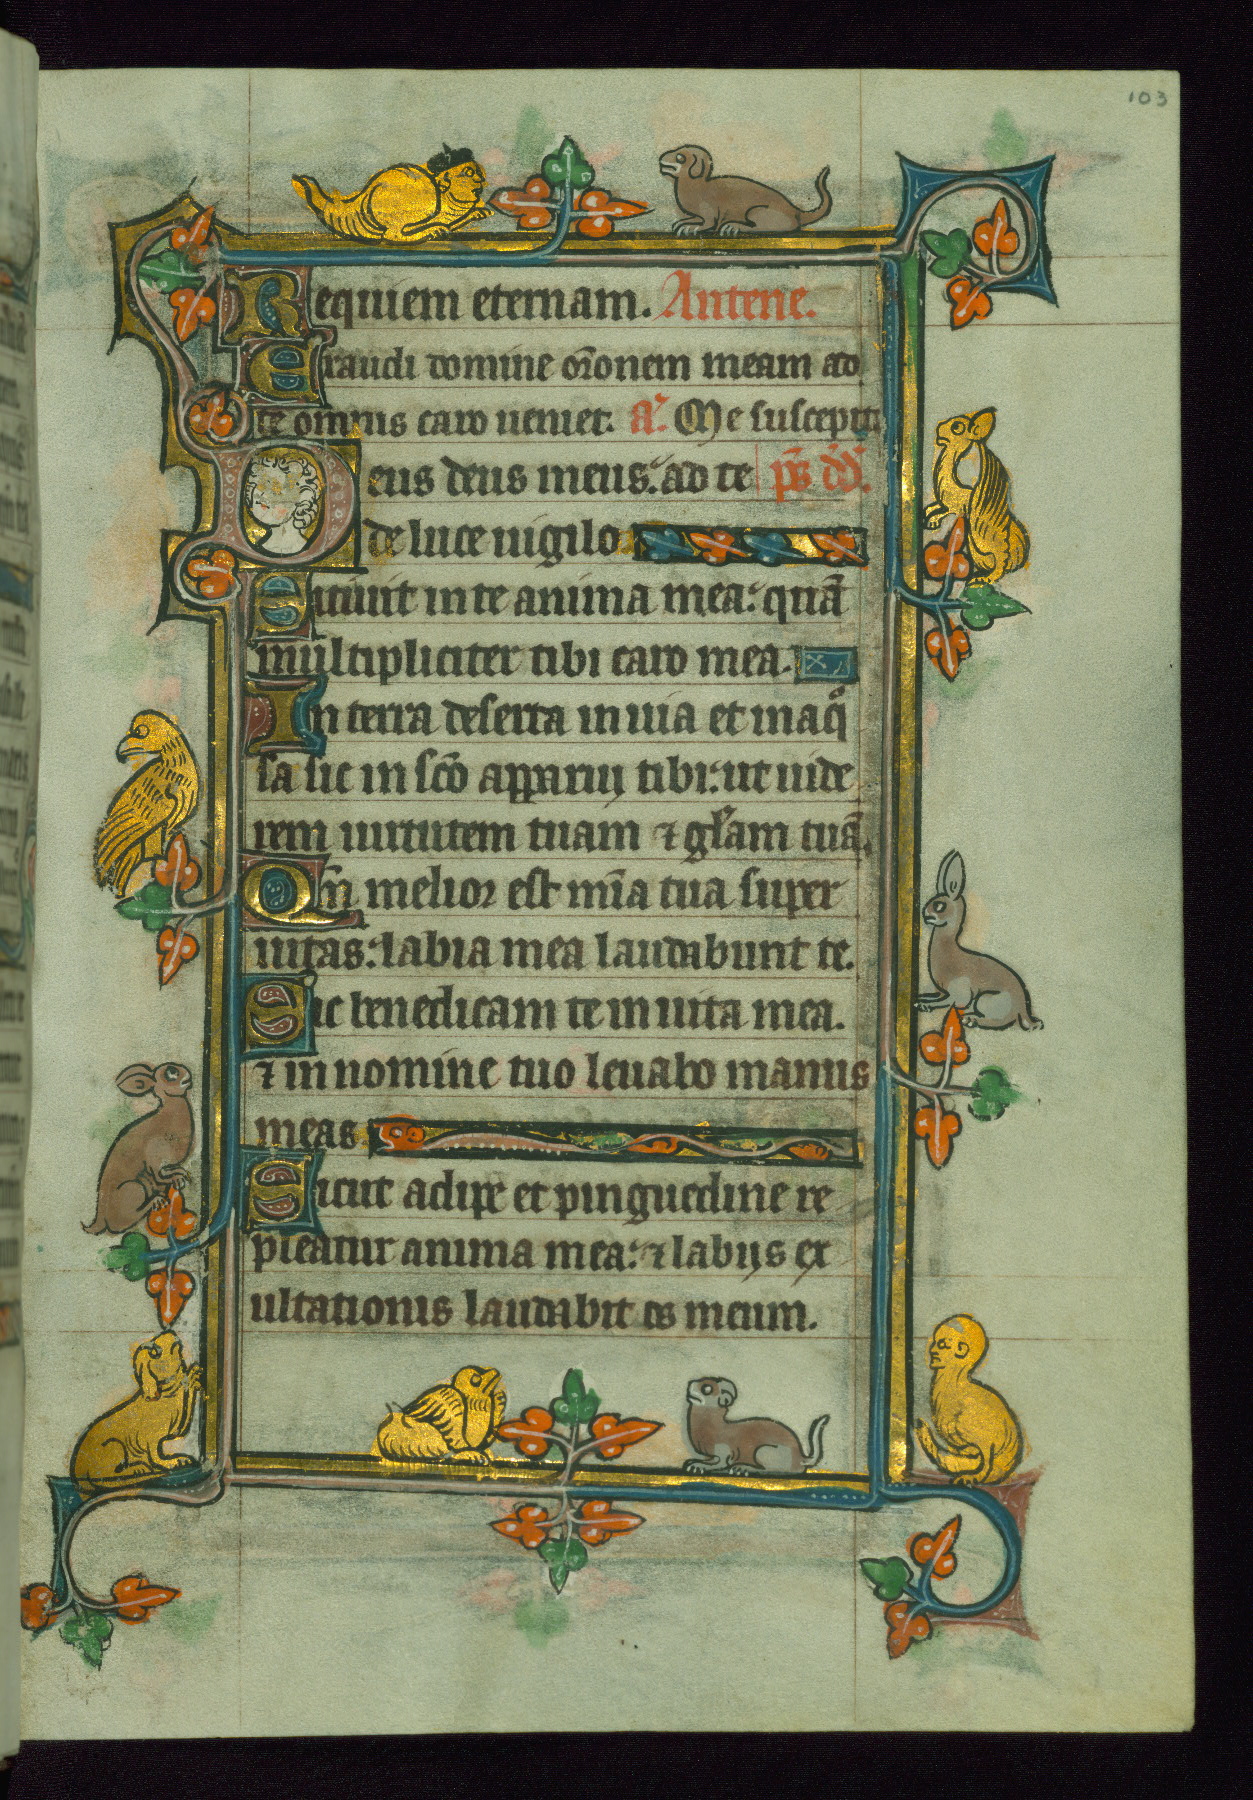 103
Requiem eternam. Antene.
Exaudi domine or̄onem meam ad
te omnis caro ueniet. a᷒. Me suscepit.
Deus deus meus: ad te ps̄ dd̄.
de luce uigilo
Sitiuit in te anima mea: quā
multipliciter tibi caro mea.
In terra deserta inuia et inaq̊
sa sic in sc̄o apparuy tibi: ut uide
rem uirtutem tuam ⁊ gl̄am tuā.
Qm̄ melior est mīa tua super
uitas: labia mea laudabunt te.
Sic benedicam te in uita mea.
⁊ in nomine tuo leuabo manus
meas
Sicut adipe et pinguedine re
pleatur anima mea: ⁊ labijs ex
ultationis laudabit os meum.